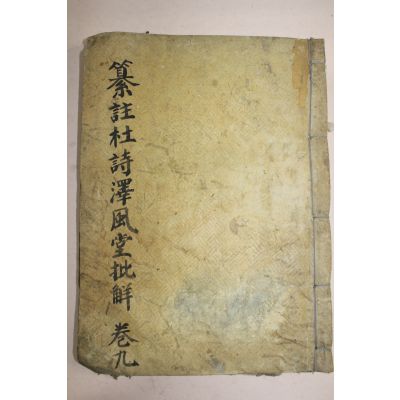 纂註杜詩澤風堂批解 卷九